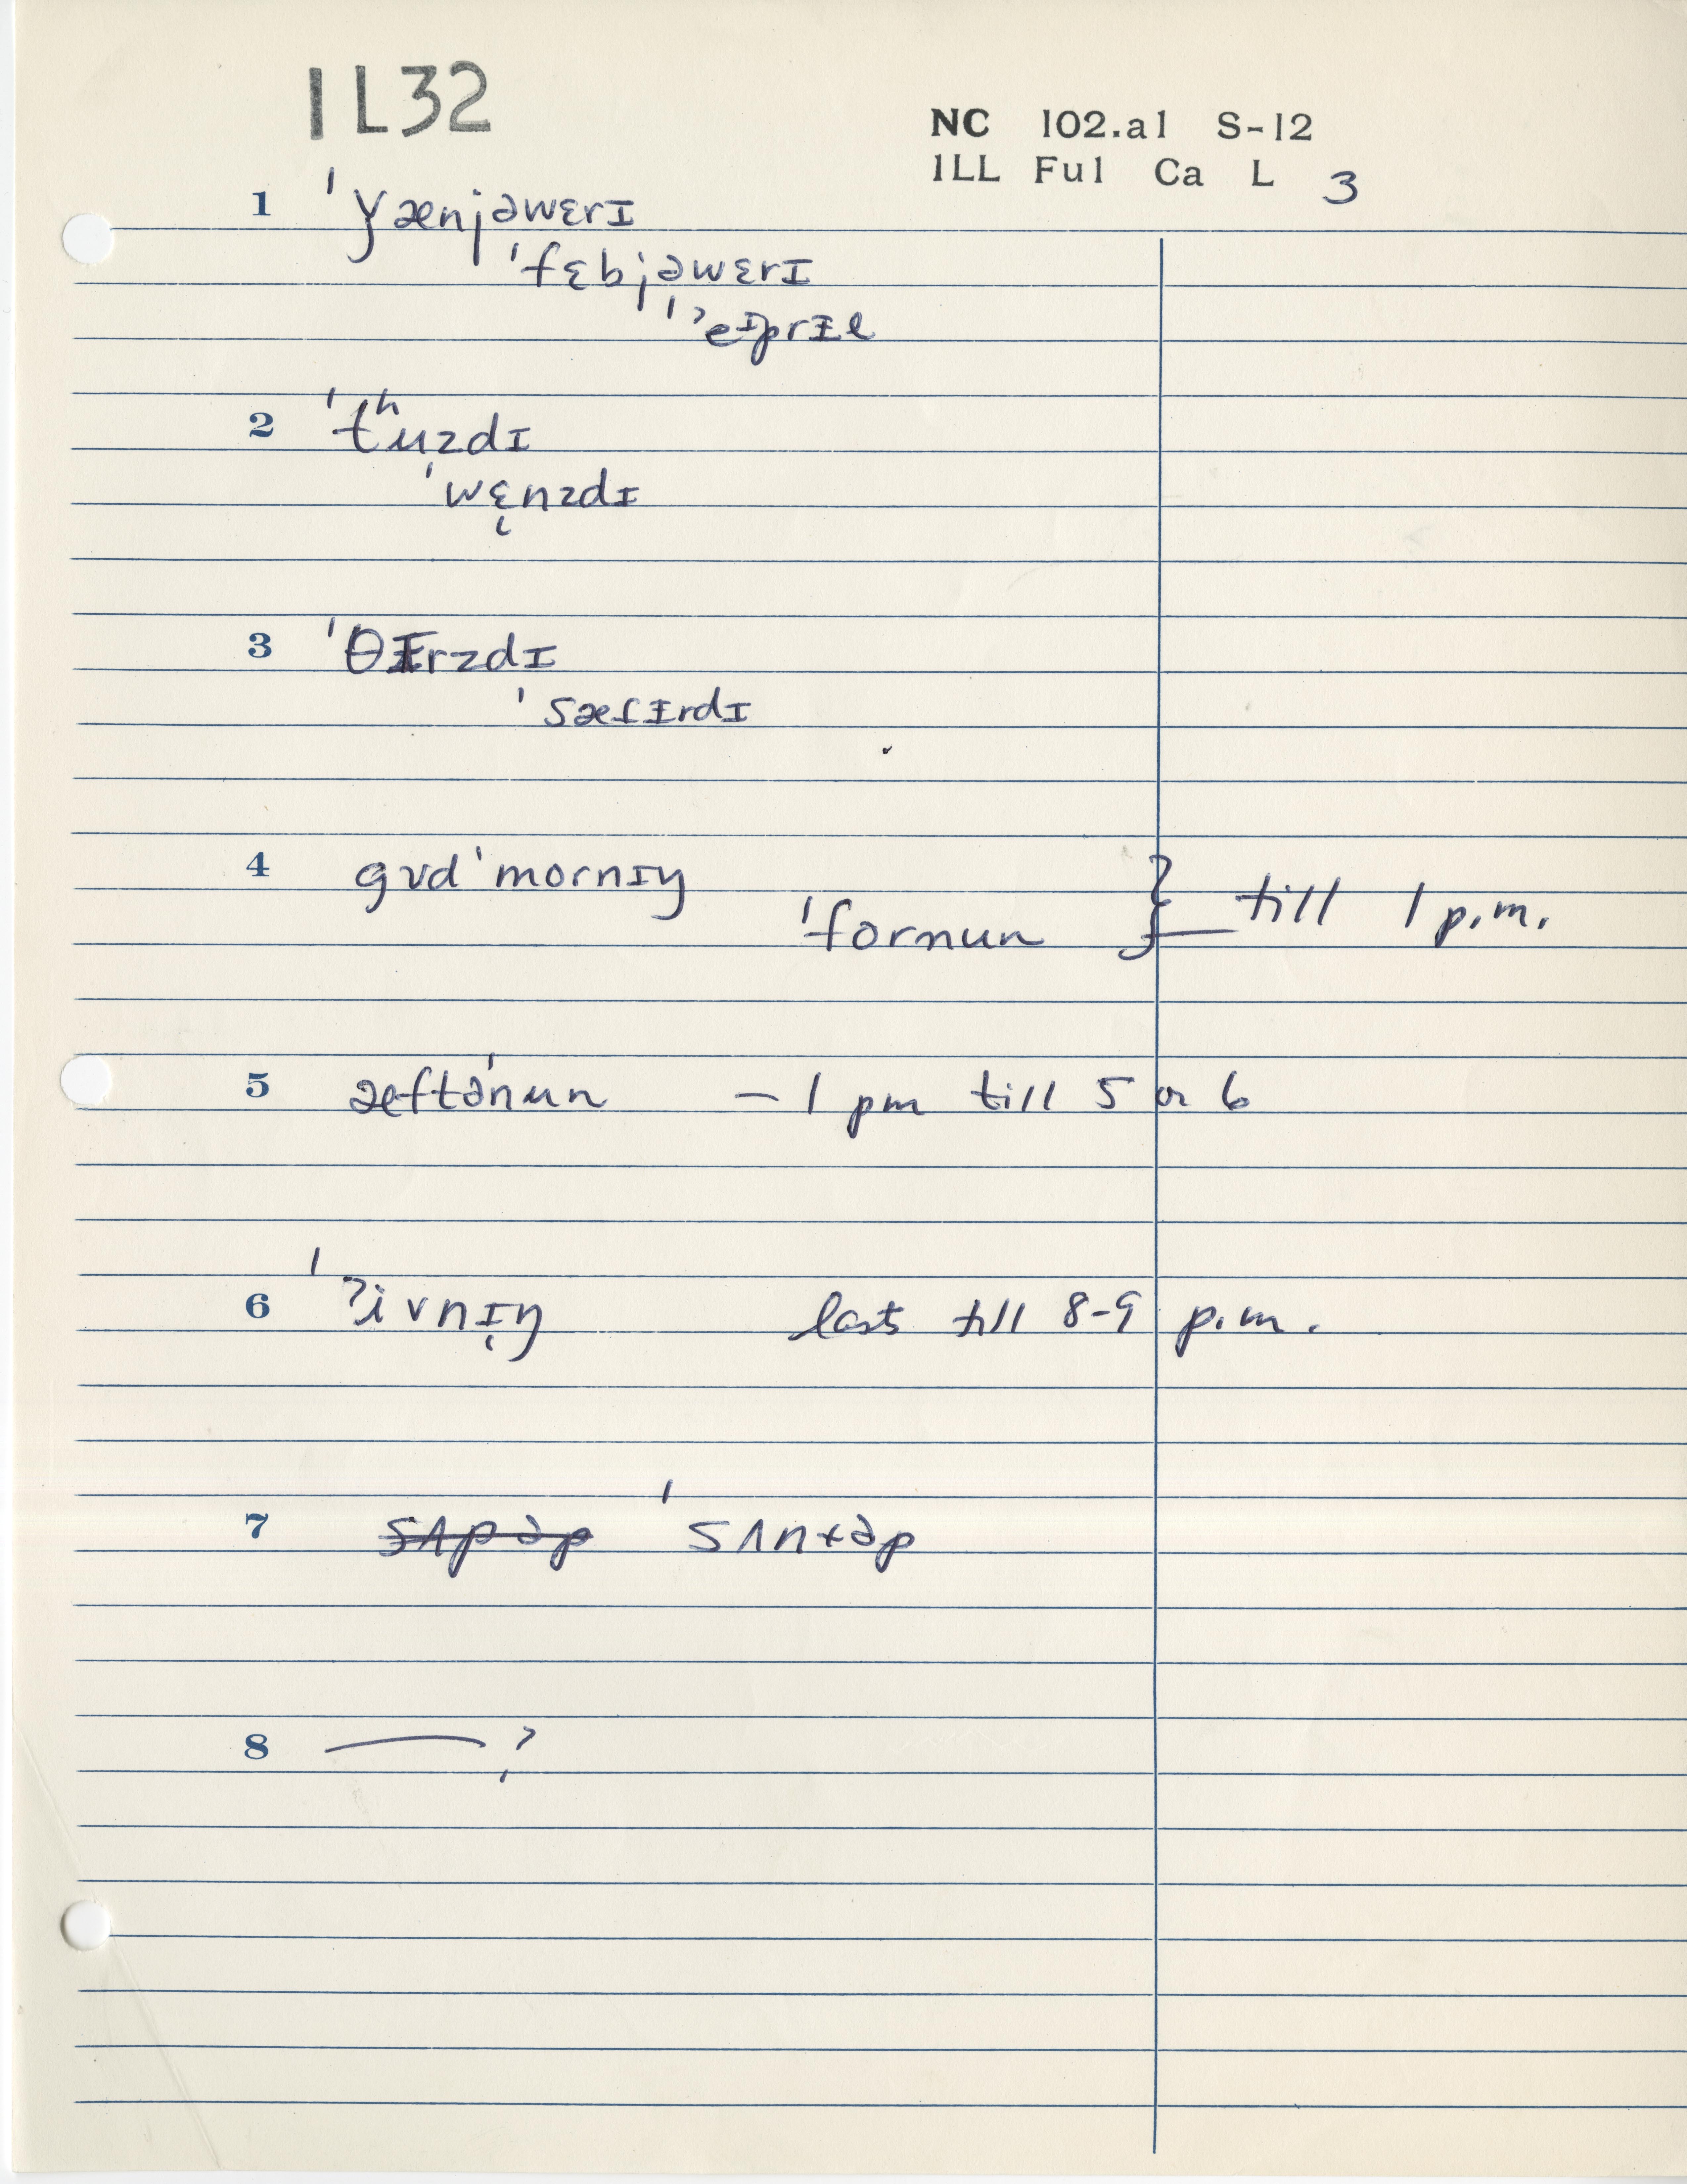 IL32
NC 102.a1 S-12
ILL Ful Ca L 3
1 ˈɣænjəwɛrɪ
ˈfɛbjəwɛrɪ
ˈˀeɪprɪ̵l
2 ˈtʰuzdɪ
ˈwɛ̨nzdɪ
3 ˈθɪ̵rzdɪ
ˈsæɾɪ̵rdɪ
4 gʊd ˈmornɪŋ
ˈfornun } — till 1 p.m.
5 æftəˈnun — 1 pm till 5 or 6
6 ˈʔivnɪ̨ŋ last till 8-9 p.m.
7 ˈsʌntəp
8 — ?